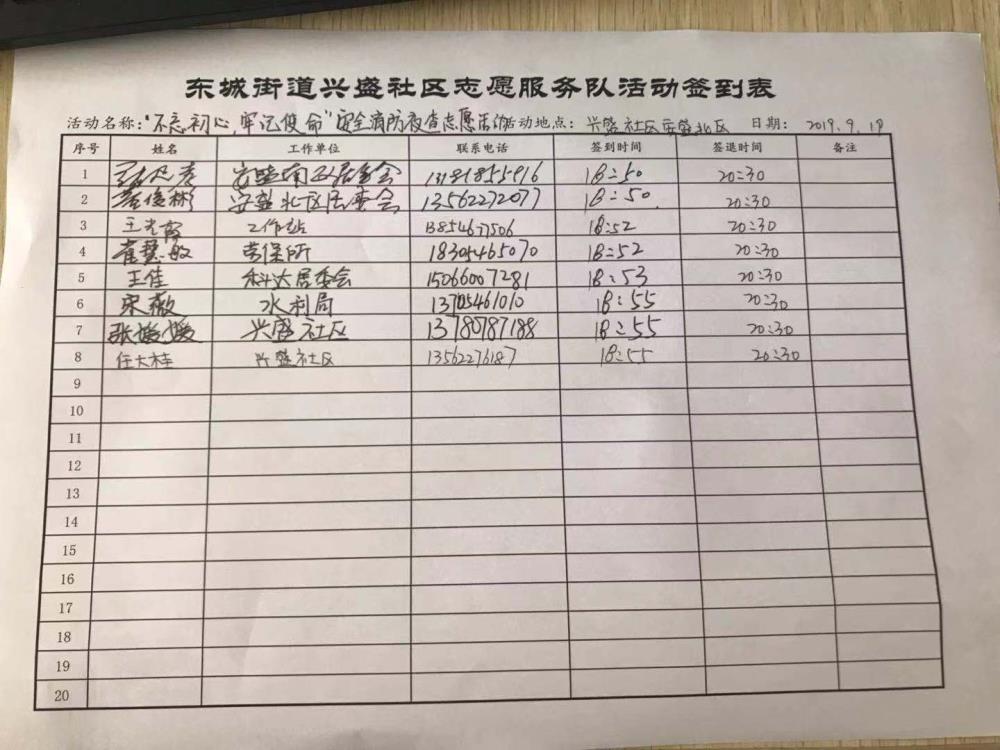 东城街道兴盛社区志愿服务队活动签到表
活动名称："不忘初心,牢记使命"安全消防夜查志愿活动 活动地点：兴盛社区安盛北区 日期：2019.9.19
序号 姓名 工作单位 联系电话 签到时间 签退时间 备注
1 安盛南区居委会 13181855916 18:50 20:30
2 俊彬 安盛北区居委会 13562272077 18:50 20:30
3 王 工作站 13854677506 18:52 20:30
4 崔慧敏 劳保所 18305465070 18:52 20:30
5 王佳 科达居委会 15066007281 18:53 20:30
6 宋薇 水利局 13705461010 18:55 20:30
7 张媛媛 兴盛社区 13780787188 18:55 20:30
8 任大桂 兴盛社区 13562276187 18:55 20:30
9
10
11
12
13
14
15
16
17
18
19
20